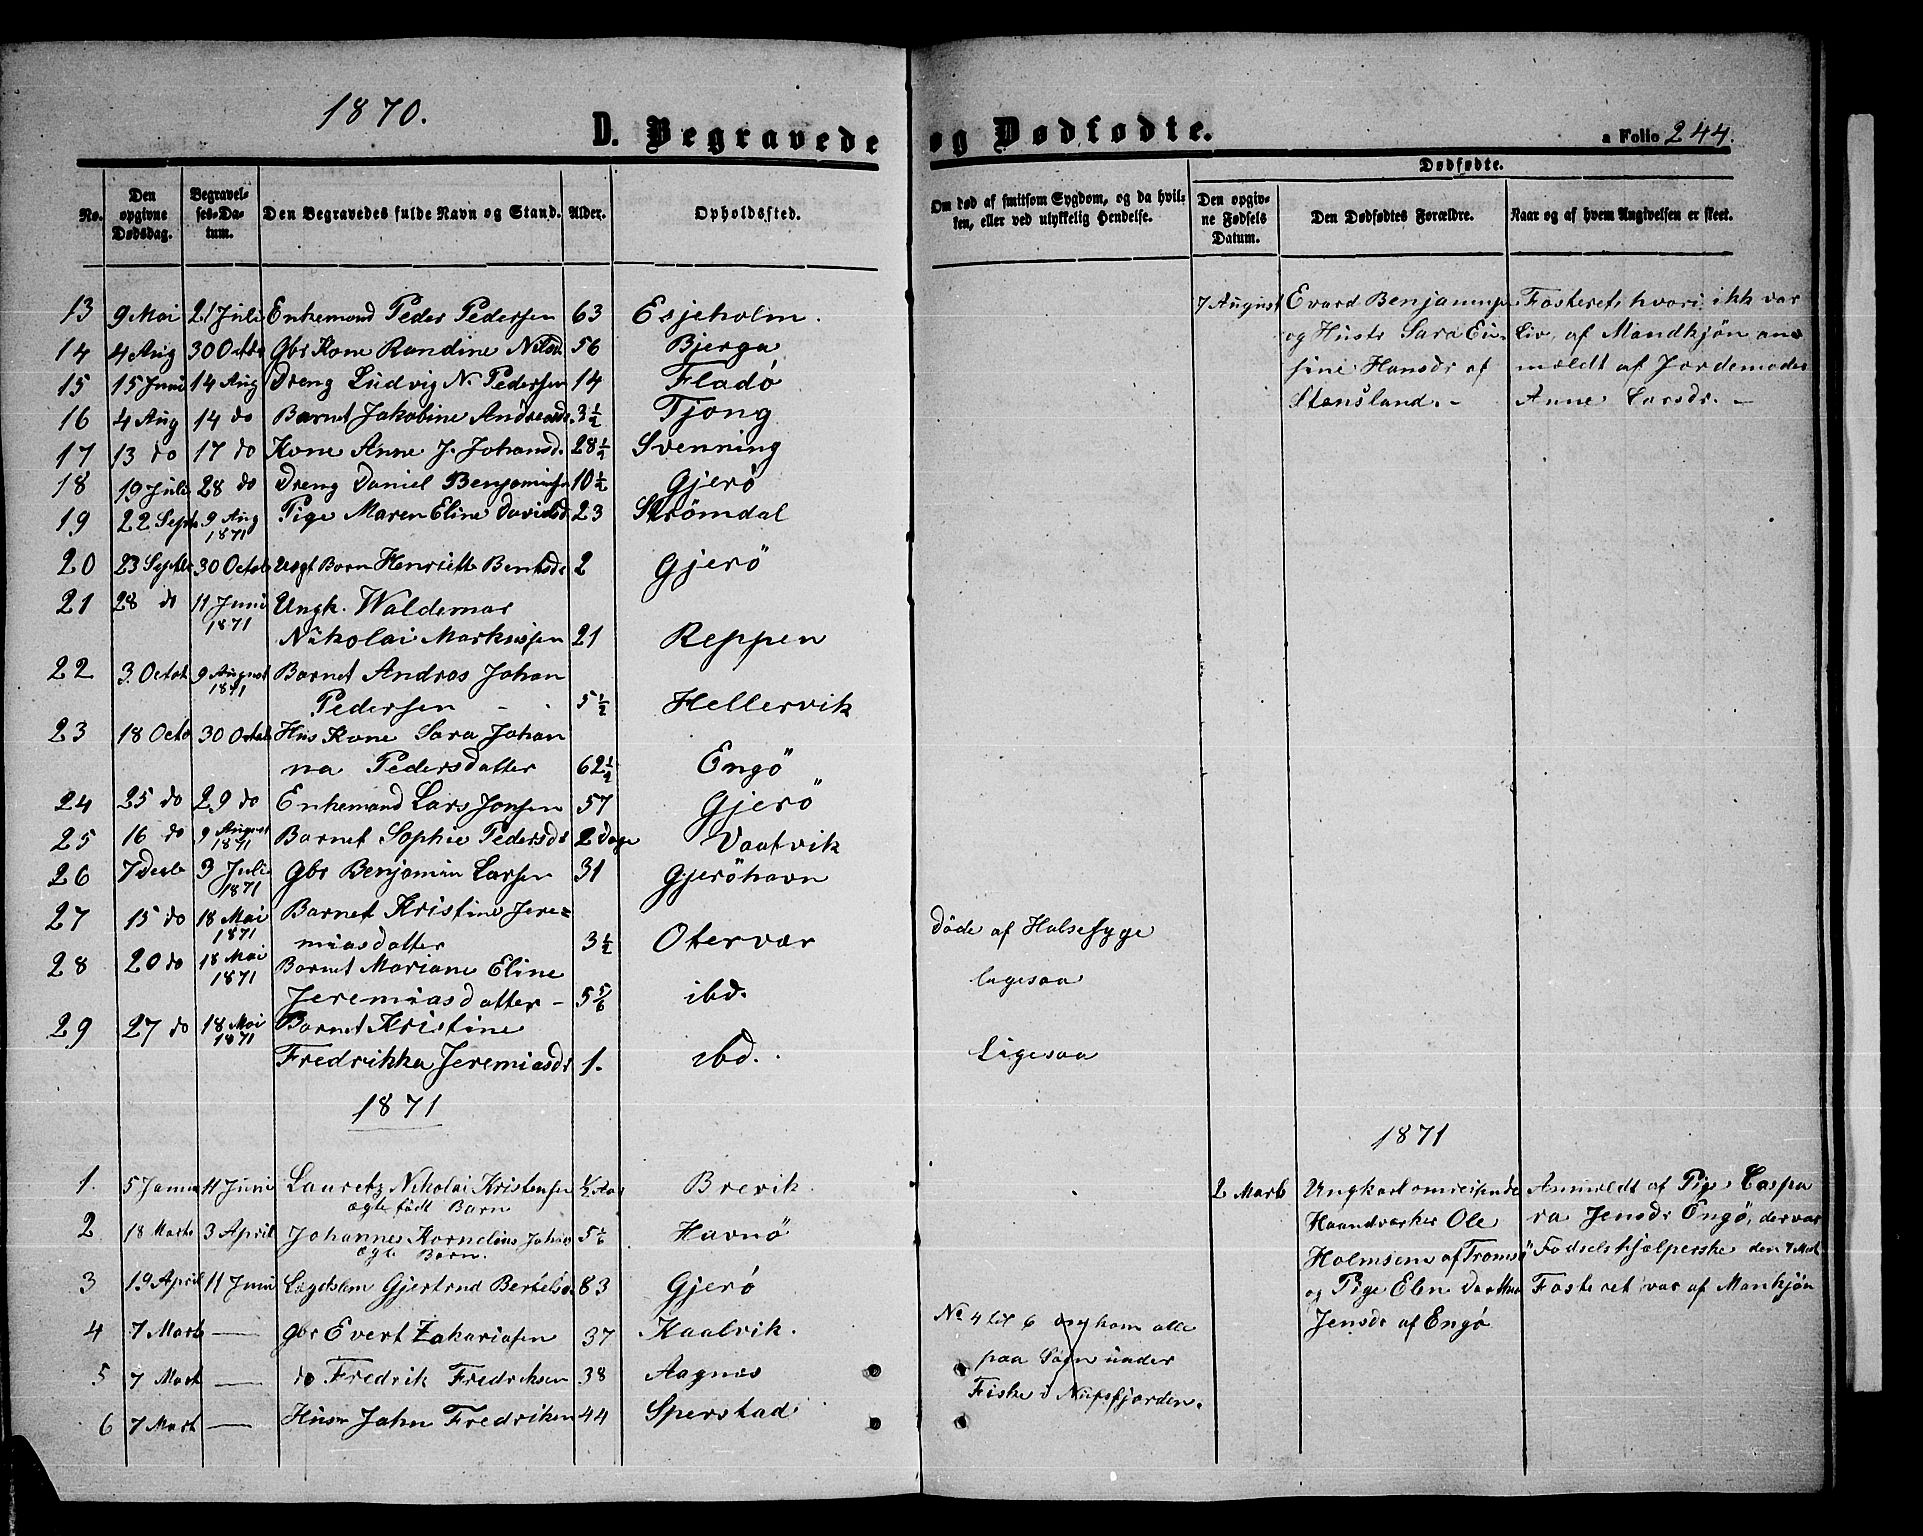 1870.
D. Begravede og Dødfødte.
a Folio 244.
No.
Den opgivne Dødsdag.
Begravelses-Datum.
Den Begravedes fulde Navn og Stand.
Alder.
Opholdssted.
Om død af smitsom Sygdom, og da hvilken, eller ved ulykkelig Hendelse.
Dødfødte.
Den opgivne Fødsels Datum.
Den Dødfødtes Forældre.
Naar og af hvem Angivelsen er skeet.
13 9 Mai 21 Juli Enkemand Peder Pedersen 63 Esjeholm.
14 4 Aug 30 Octb Gbr Kone Randine Nilsd 56 Bjerga
15 15 Juni 14 Aug Dreng Ludvig N. Pedersen 14 Fladö
16 4 Aug 14 do Barnet Jakobine Andreasd. 3½ Tjong
17 13 do 17 do Kone Anne J. Johansd. 28½ Svenning
18 19 Juli 28 do Dreng Daniel Benjaminsen 10½ Gjerö
19 22 Septb 9 Aug 1871 Pige Maren Eline Davidsd. 23 Strömdal
20 23 Septb 30 Octob Uægt Barn Henriette Bentsdr 2 Gjerö
21 28 do 11 Juni 1871 Ungk. Waldemar
Nikolai Markussen 21 Reppen
22 3. Octob 9 August 1871 Barnet Andreas Johan
Pedersen - - 5½ Hellervik
23 18 Octo 30 Octob Hus Kone Sara Johan
na Pedersdatter 62½ Engö
24 25 do 29 do Enkemand Lars Jonsen 57 Gjerö
25 16 do 9 August 1871 Barnet Sophie Pedersdr 2 Dage Vaatvik
26 7 Decb 3 Juli 1871 Gbr Benjamin Larsen 31 Gjeröhavn
27 15 do 18 Mai 1871 Barnet Kristine Jere=
miasdatter 3½ Otervær Döde af Halsesyge
28 20 do 18 Mai 1871 Barnet Mariane Eline
Jeremiasdatter - 5 5/6 ibd. ligesaa
29 27 do 18 Mai 1871 Barnet Kristine
Fredrikka Jeremiasdr 1. ibd. Ligesaa
7 August Evard Benjaminsen
og Hustr Sara Eli-
sine Hansdr af
Stensland. -
Fosteret, hvori ikk var
Liv, af Mandkjön an=
meldt af Jordemoder
Anne Larsdr. -
1871
1. 5 Januar 11 Juni Lauretz Nikolai Kristensen ½ Aar Brevik.
ægte födt Barn
2 18 Marts 3 April Johannes Kornelius Johns 5⅙ Havnö
ægte Barn.
3 19 April 11 Juni Lægdslem Gjertrud Bertelsd. 83 Gjerö
4 7 Marts — Gbr Evert Zakariasen 37 Kaalvik.
5 7 Mart — do Fredrik Fredriksen 38 Aagnæs
6 7 Mart — Husm John Fredriksen 44 Sperstad
No 4 til 6 omkom alle
paa Söen under
Fiske i Nufsfjorden.
1871
2 Marts Ungkarl omreisende
Haandværker Ole
Holmsen af Tromsö
og Pige Elen Dorthea
Jensdr af Engö
Anmeldt af Pige Caspa
ra Jensdr Engö, der var
Födselshjælperske den 7 Mart
Fosteret var af Mankjön